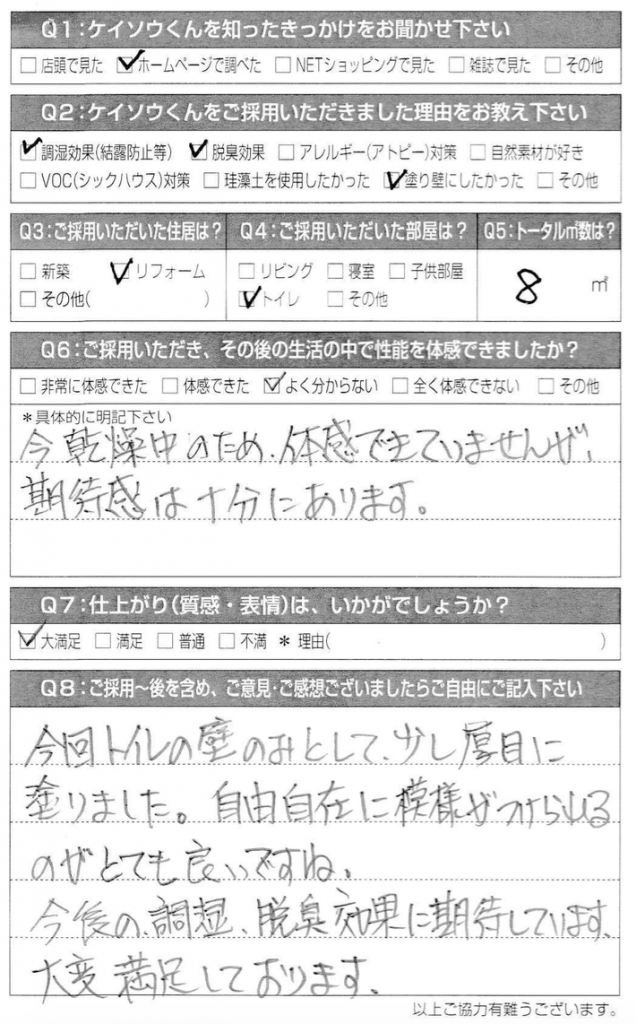 Q1:ケイソウくんを知ったきっかけをお聞かせ下さい
□店頭で見た ☑ホームページで調べた □NETショッピングで見た □雑誌で見た □その他
Q2:ケイソウくんをご採用いただきました理由をお教え下さい
☑調湿効果(結露防止等) ☑脱臭効果 □アレルギー(アトピー)対策 □自然素材が好き
□VOC(シックハウス)対策 □珪藻土を使用したかった ☑塗り壁にしたかった □その他
Q3:ご採用いただいた住居は? Q4:ご採用いただいた部屋は? Q5:トータル㎡数は?
□新築 ☑リフォーム □リビング □寝室 □子供部屋 8 ㎡
□その他( ) ☑トイレ □その他
Q6:ご採用いただき、その後の生活の中で性能を体感できましたか?
□非常に体感できた □体感できた ☑よく分からない □全く体感できない □その他
*具体的に明記下さい
今乾燥中のため、体感できていませんが、
期待感は十分にあります。
Q7:仕上がり(質感・表情)は、いかがでしょうか?
☑大満足 □満足 □普通 □不満 *理由( )
Q8:ご採用〜後を含め、ご意見・ご感想ございましたらご自由にご記入下さい
今回トイレの壁のみとして、少し厚目に
塗りました。自由自在に模様がつけられる
のがとても良いですね。
今後の、調湿、脱臭効果に期待しています。
大変満足しております。
以上ご協力有難うございます。